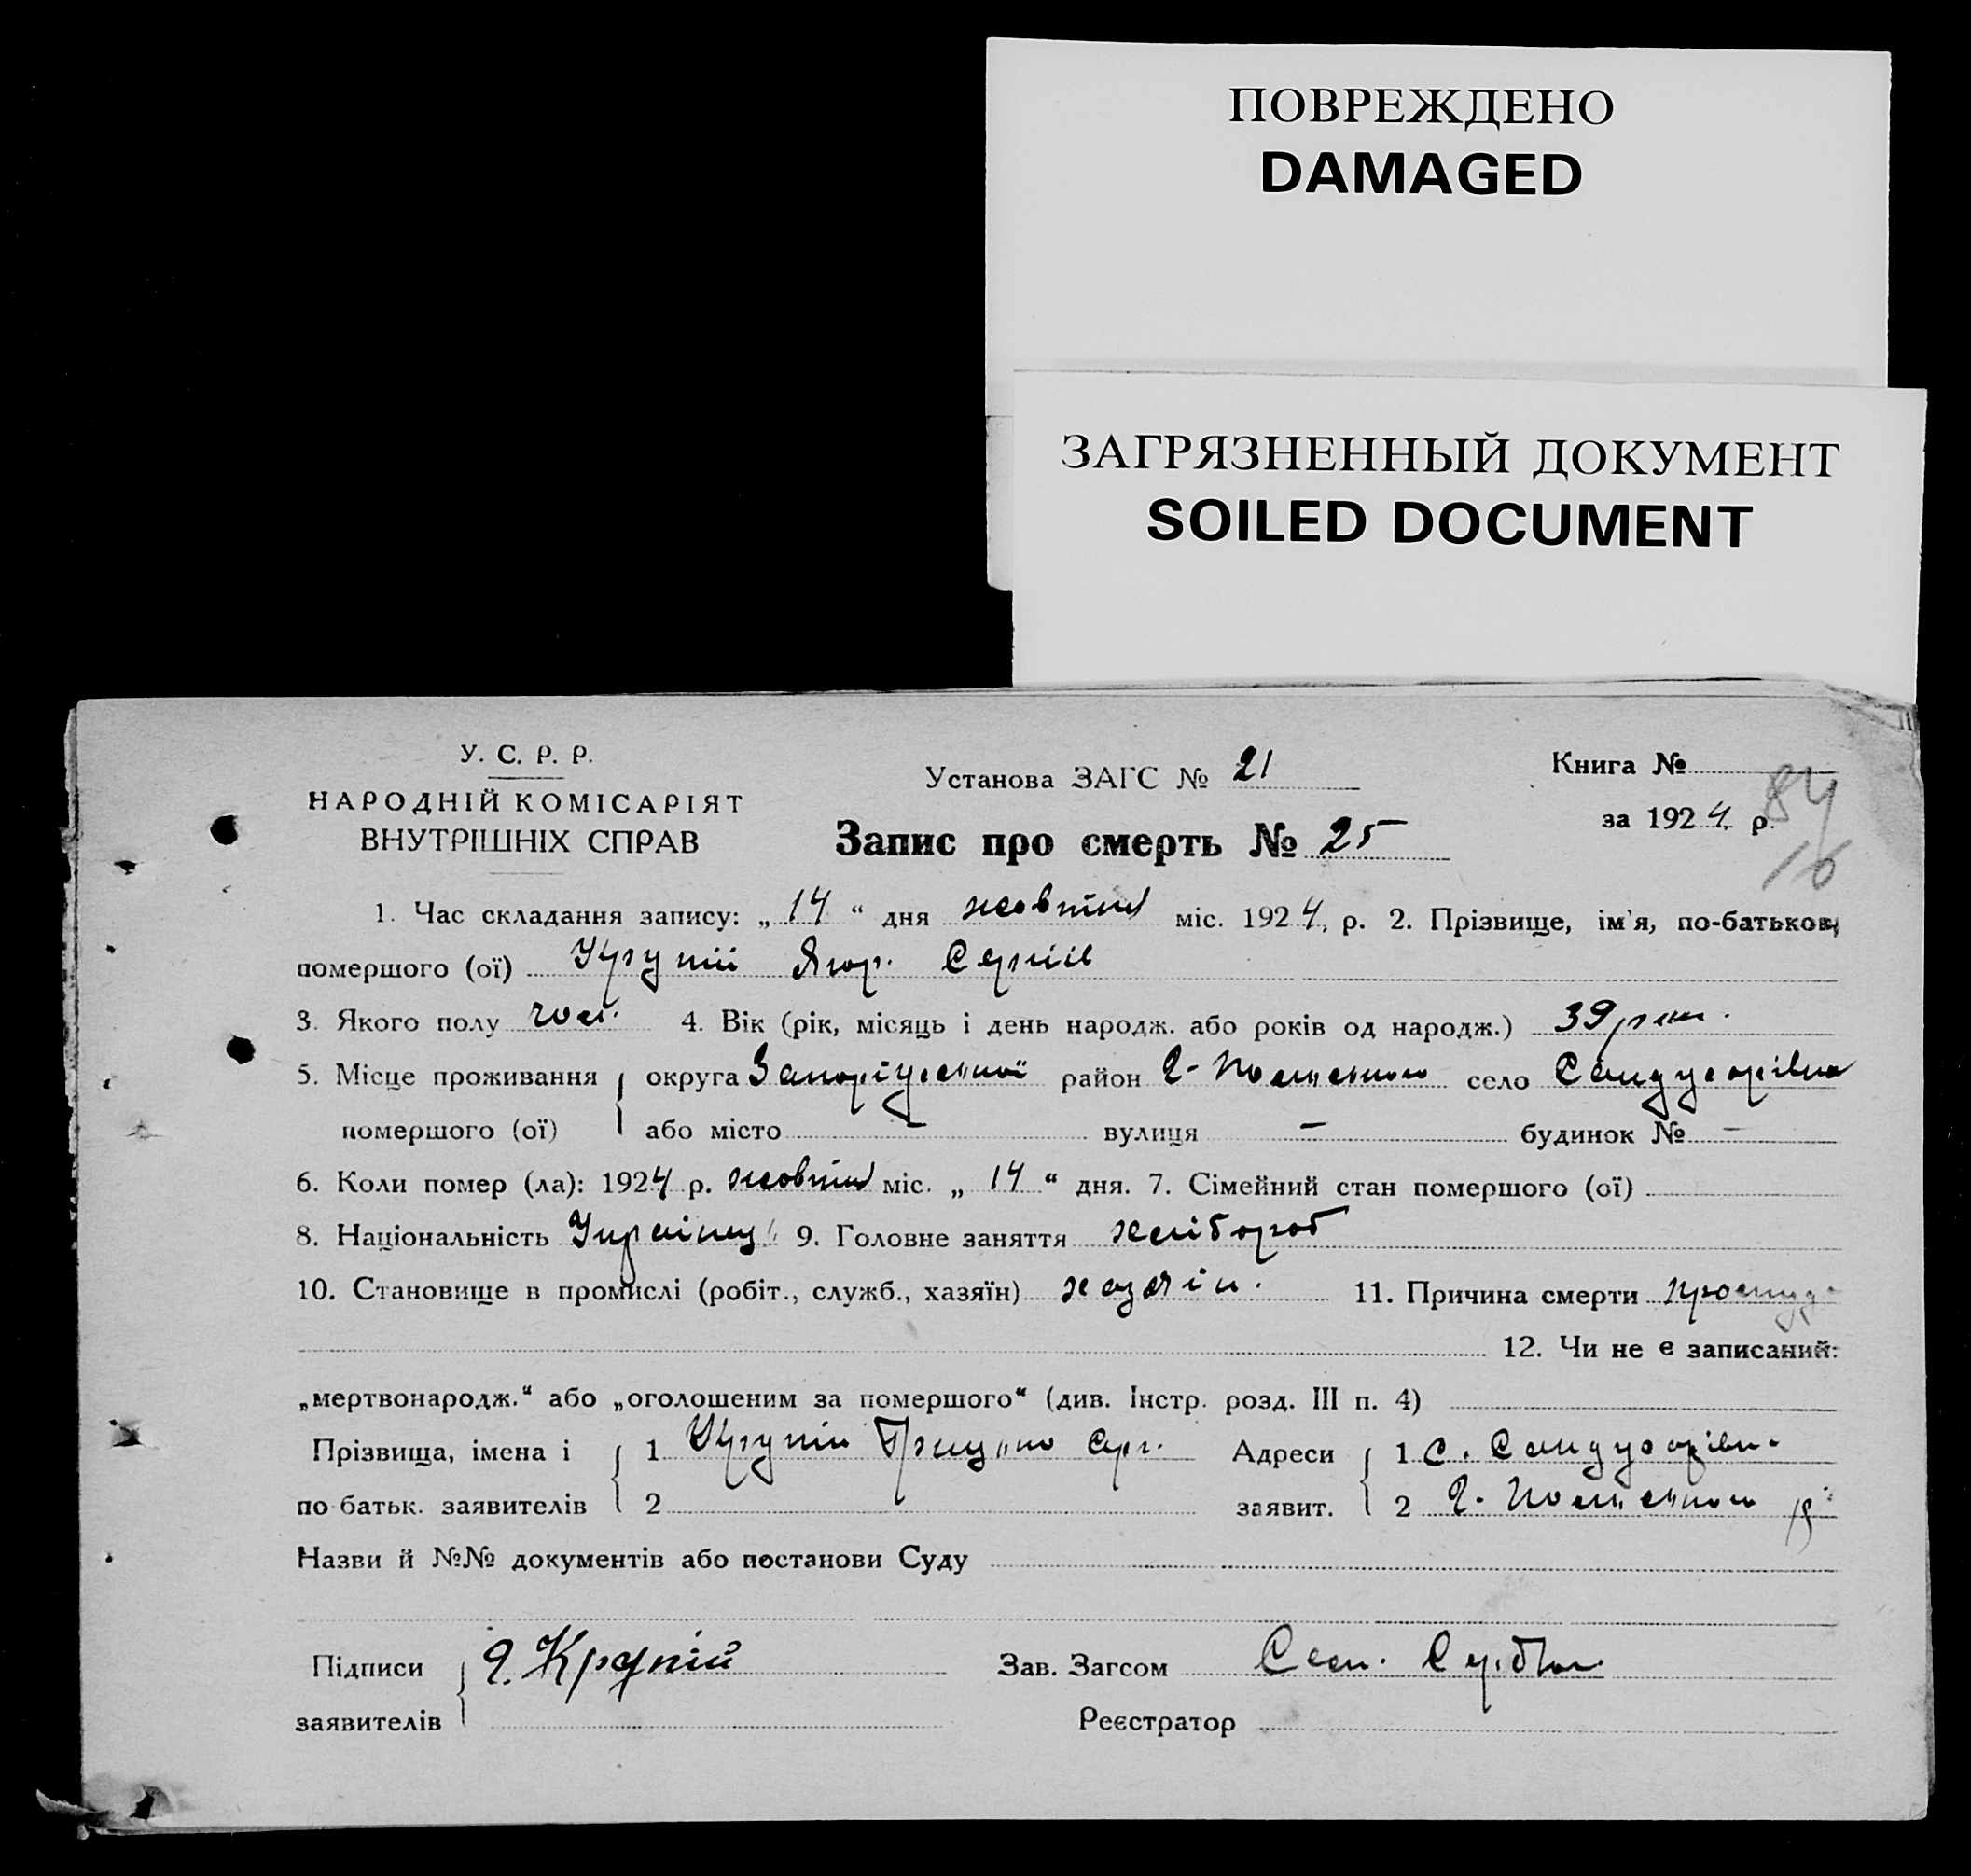 ПОВРЕЖДЕНО
DAMAGED
ЗАГРЯЗНЕННЫЙ ДОКУМЕНТ
SOILED DOCUMENT
У. С. Р. Р.
НАРОДНІЙ КОМІСАРІЯТ
ВНУТРІШНІХ СПРАВ
Установа ЗАГС № 21
Книга №
за 1924 р.
84
16
Запис про смерть № 25
1. Час складання запису: „ 14 “ дня жовтня міс. 1924, р. 2. Прізвище, ім'я, по-батькові
помершого (ої) Крупій Ягор. Сергіів
3. Якого полу чол. 4. Вік (рік, місяць і день народж. або років од народж.) 39
5. Місце проживання округа Запоріжської район село
помершого (ої) або місто – вулиця – будинок № –
6. Коли помер (ла): 1924 р. жовтня міс. „ 14 “ дня. 7. Сімейний стан помершого (ої)
8. Національність Украінец 9. Головне заняття хлібороб
10. Становище в промислі (робіт., служб., хазяїн) хазяін. 11. Причина смерти простуд
12. Чи не є записаний:
„мертвонародж.“ або „оголошеним за помершого“ (див. Інстр. розд. III п. 4)
Прізвища, імена і 1 Крупій Грицько Серг. Адреси 1 с.
по батьк. заявителів 2 заявит. 2
Назви й №№ документів або постанови Суду
Підписи Крупій Зав. Загсом
заявителів Реєстратор